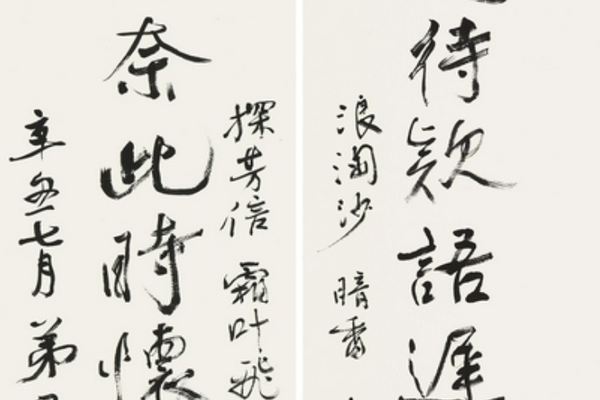 待欵語遲
浪淘沙 暗香
探芳信 霜叶飛
奈此時懷
辛丑七月 弟